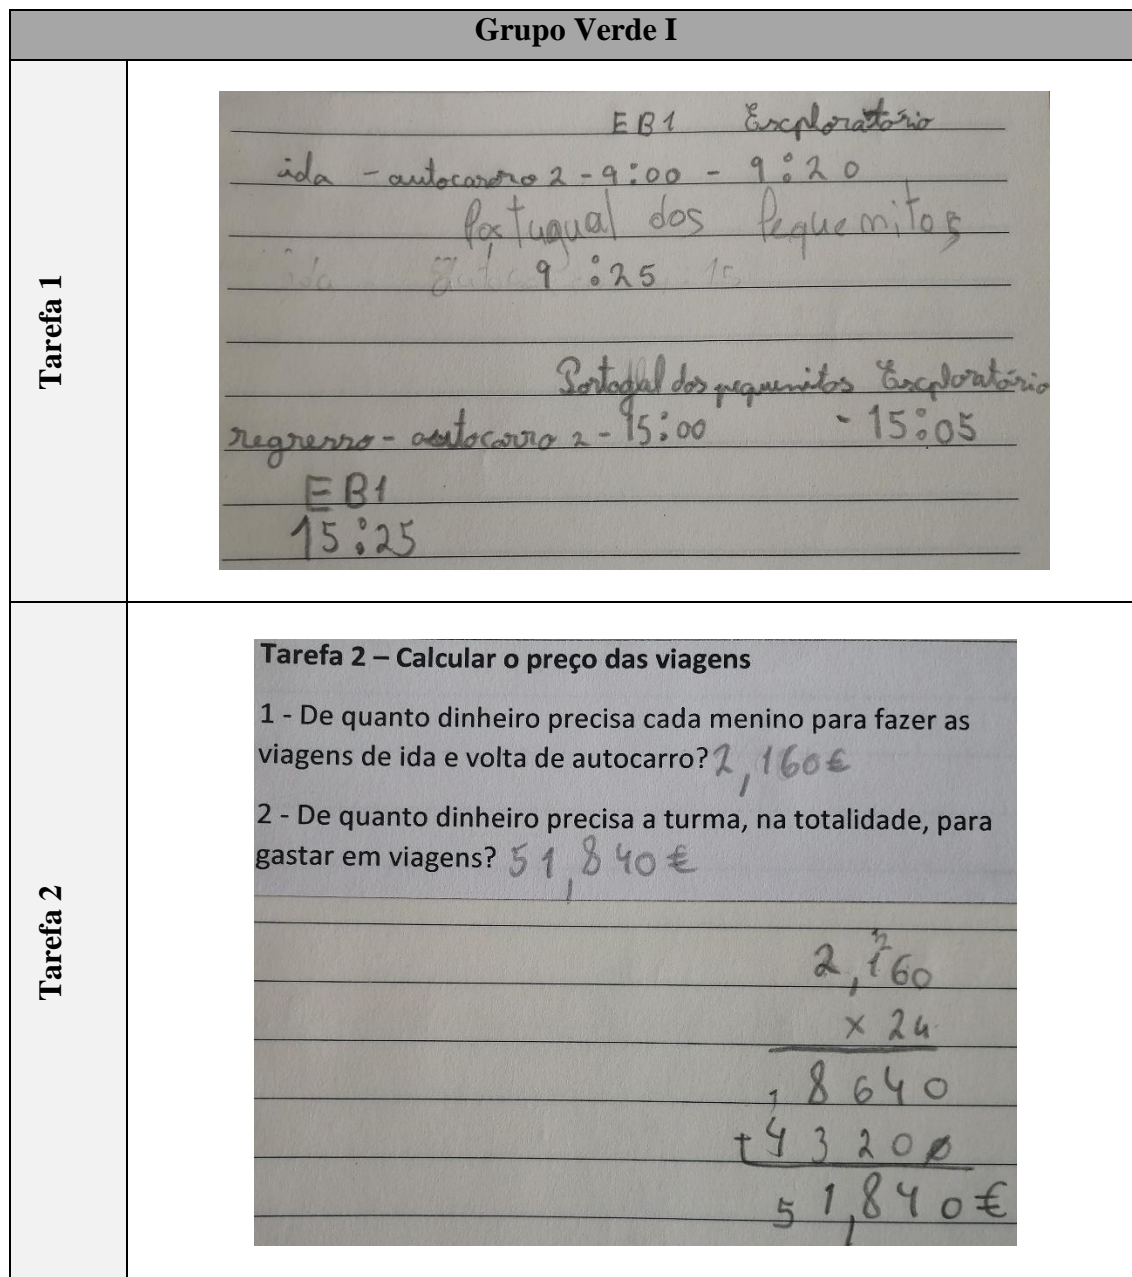 Grupo Verde I
Tarefa 1
EB1 Excploratório
ida - autocarro 2 - 9:00 - 9:20
Portugual dos Pequenitos
9:25
Portogal dos pequenitos Excploratório
regresso - autocarro 2 - 15:00 - 15:05
EB1
15:25
Tarefa 2
Tarefa 2 – Calcular o preço das viagens
1 - De quanto dinheiro precisa cada menino para fazer as
viagens de ida e volta de autocarro? 2,160€
2 - De quanto dinheiro precisa a turma, na totalidade, para
gastar em viagens? 51,840€
2
2,160
x 24
1 8640
+ 43200
51,840€